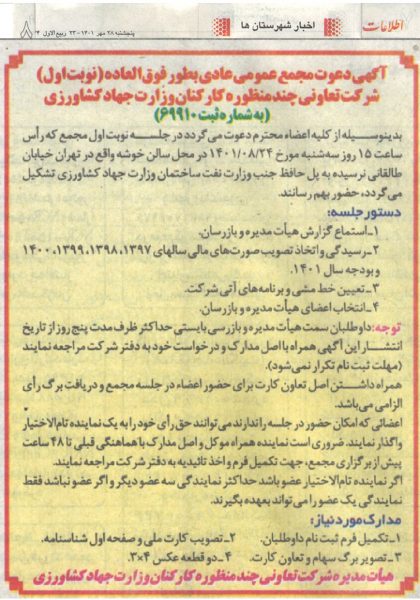 اطلاعات
اخبار شهرستان ها
پنجشنبه ۲۸ مهر ۱۴۰۱ - ۲۳ ربیع الاول ۴
۸
آگهی دعوت مجمع عمومی عادی بطور فوق العاده (نوبت اول)
شرکت تعاونی چند منظوره کارکنان وزارت جهاد کشاورزی
(به شماره ثبت ۶۹۹۱۰)
بدینوسیله از کلیه اعضاء محترم دعوت می گردد در جلسه نوبت اول مجمع که رأس
ساعت ۱۵ روز سه شنبه مورخ ۱۴۰۱/۰۸/۲۴ در محل سالن خوشه واقع در تهران خیابان
طالقانی نرسیده به پل حافظ جنب وزارت نفت ساختمان وزارت جهاد کشاورزی تشکیل
می گردد، حضور بهم رسانند.
دستور جلسه:
۱ـ استماع گزارش هیأت مدیره و بازرسان.
۲ـ رسیدگی و اتخاذ تصویب صورت های مالی سالهای ۱۳۹۷، ۱۳۹۸، ۱۳۹۹، ۱۴۰۰
و بودجه سال ۱۴۰۱.
۳ـ تعیین خط مشی و برنامه های آتی شرکت.
۴ـ انتخاب اعضای هیأت مدیره و بازرسان.
توجه: داوطلبان سمت هیأت مدیره و بازرسی بایستی حداکثر ظرف مدت پنج روز از تاریخ
انتشار این آگهی همراه با اصل مدارک و درخواست خود به دفتر شرکت مراجعه نمایند
(مهلت ثبت نام تکرار نمی شود).
همراه داشتن اصل تعاون کارت برای حضور اعضاء در جلسه مجمع و دریافت برگ رأی
الزامی می باشد.
اعضائی که امکان حضور در جلسه را ندارند می توانند حق رأی خود را به یک نماینده تام الاختیار
واگذار نمایند. ضروری است نماینده همراه موکل و اصل مدارک با هماهنگی قبلی تا ۴۸ ساعت
پیش از برگزاری مجمع، جهت تکمیل فرم و اخذ تائیدیه به دفتر شرکت مراجعه نمایند.
اگر نماینده تام الاختیار عضو باشد حداکثر نمایندگی سه عضو دیگر و اگر عضو نباشد فقط
نمایندگی یک عضو را می تواند بعهده بگیرند.
مدارک مورد نیاز:
۱ـ تکمیل فرم ثبت نام داوطلبان. ۲ـ تصویب کارت ملی و صفحه اول شناسنامه.
۳ـ تصویر برگ سهام و تعاون کارت. ۴ـ دو قطعه عکس ۴×۳.
هیأت مدیره شرکت تعاونی چند منظوره کارکنان وزارت جهاد کشاورزی